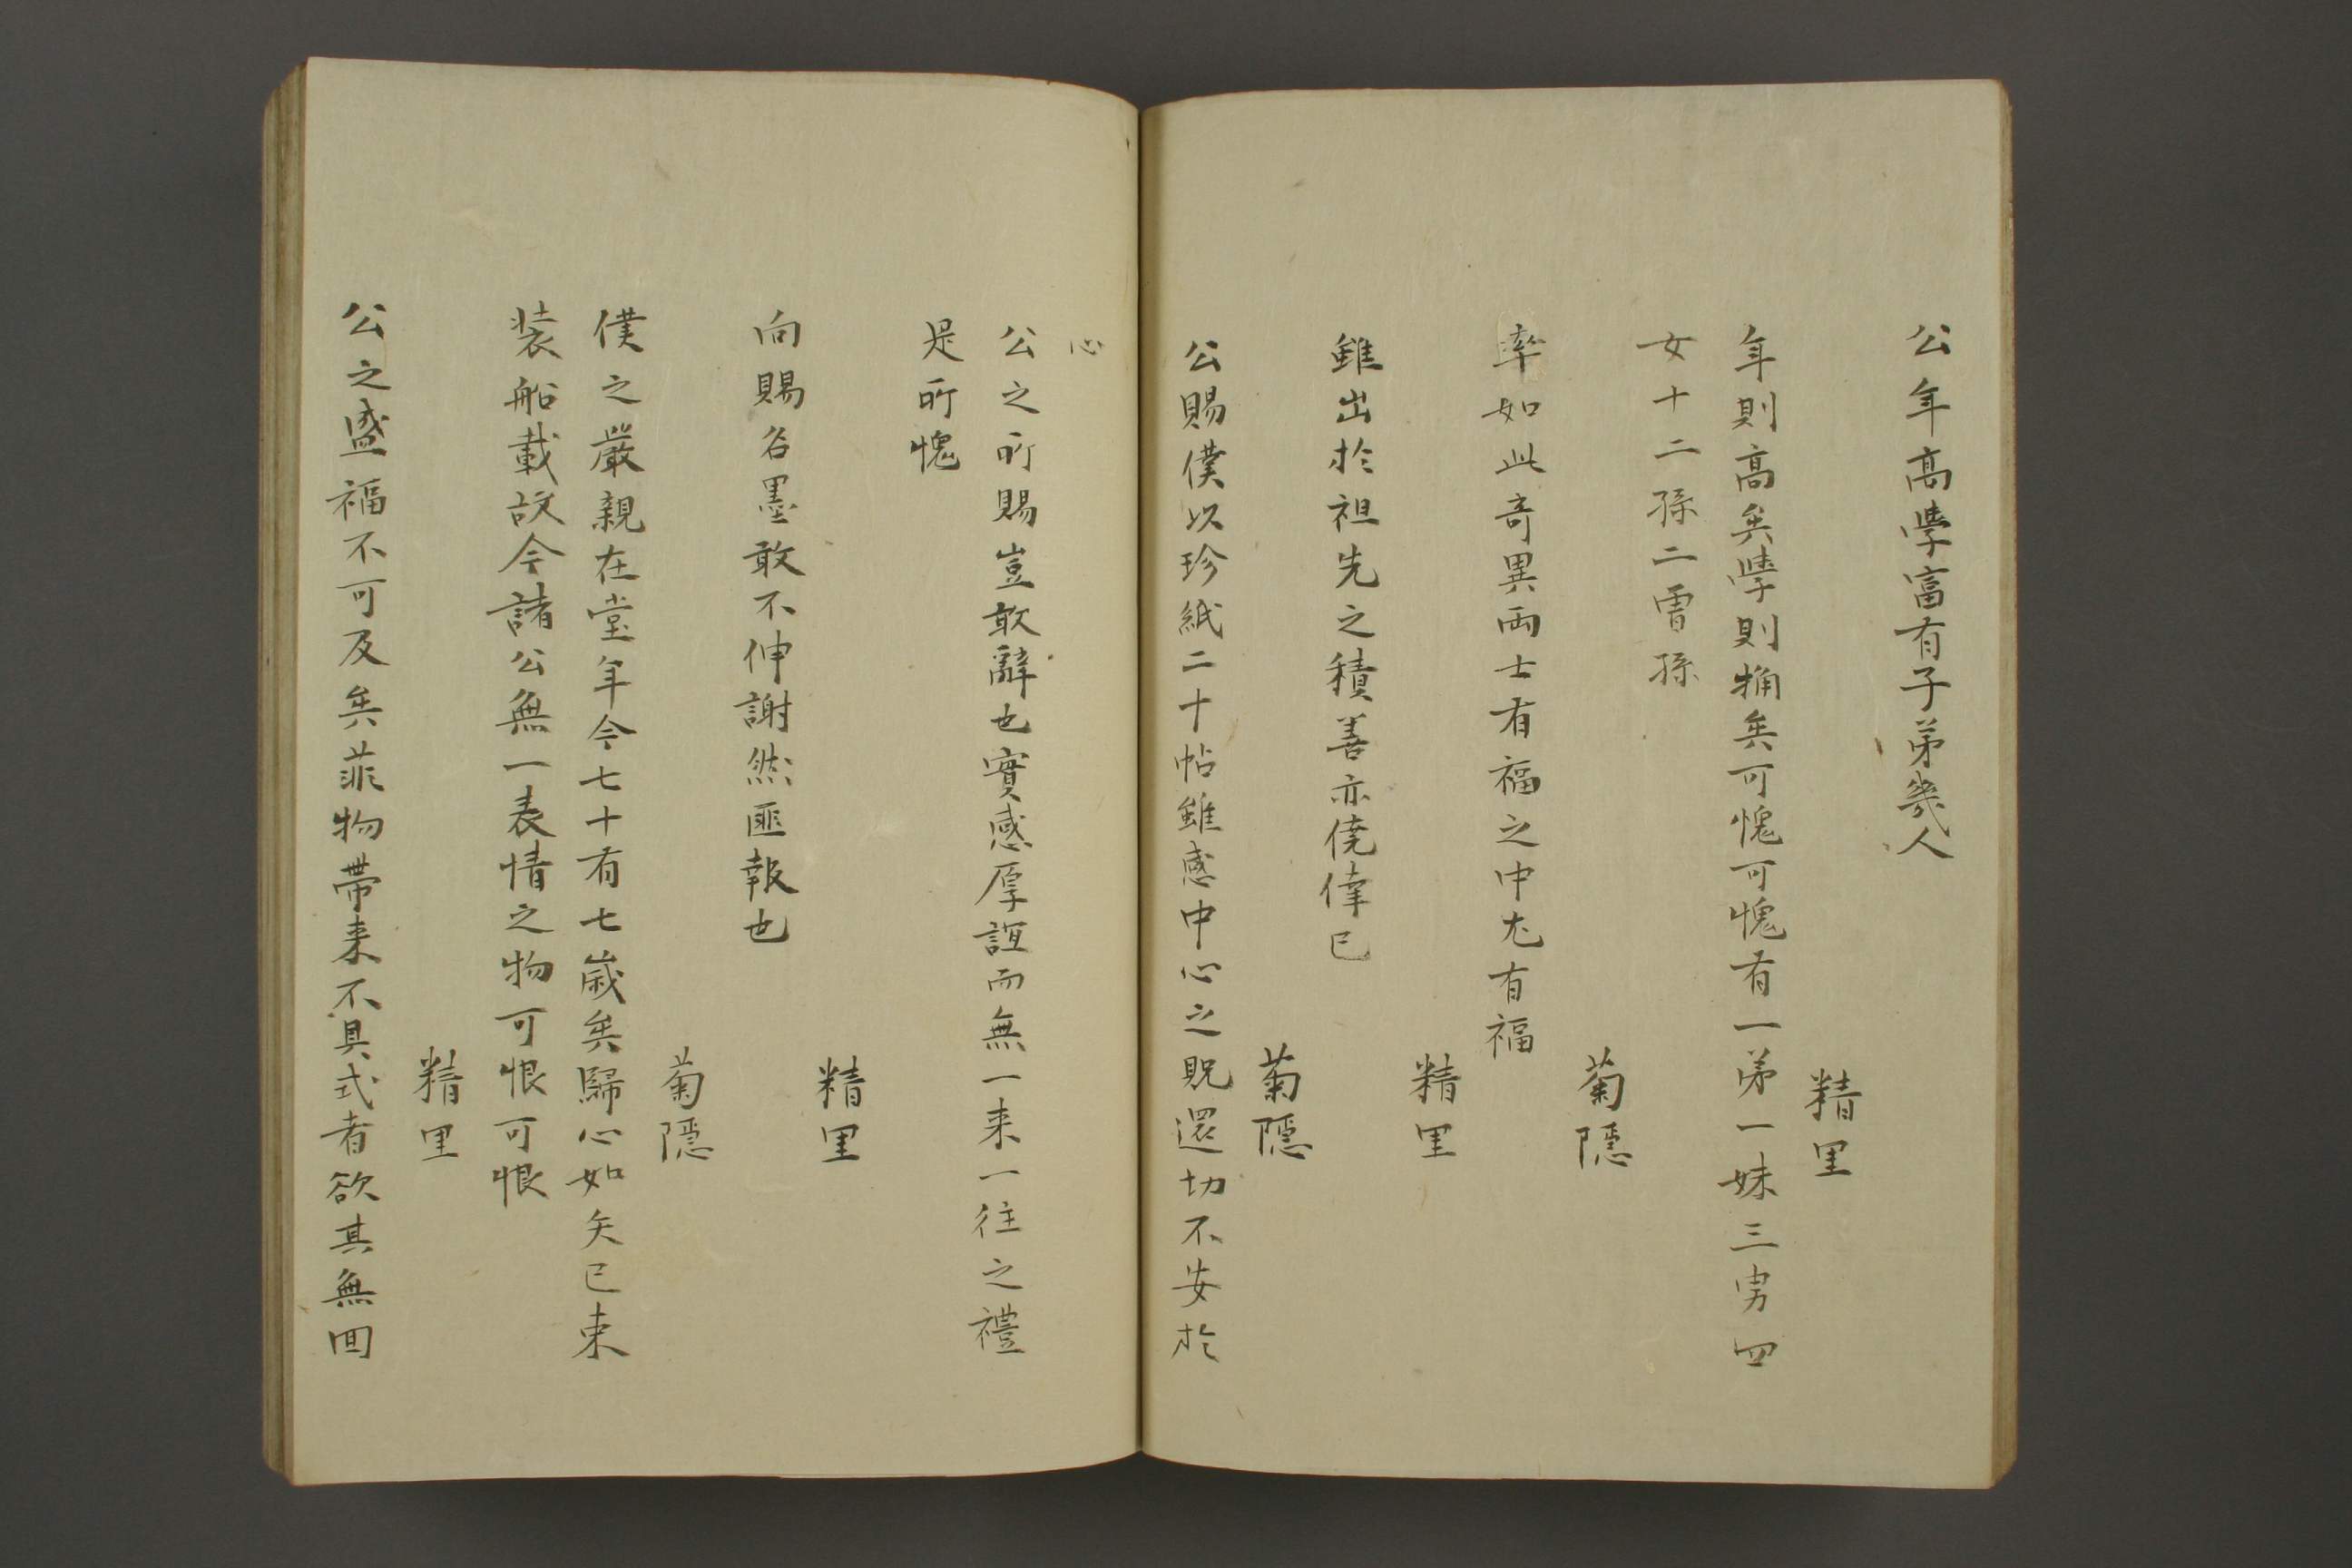 公年高學富有子弟幾人
精里
年則高矣學則觕矣可愧可愧有一弟一妹三男四
女十二孫二曾孫
菊隱
率如此奇異両士有福之中尤有福
精里
雖出於祖先之積善亦僥倖已
菊隱
公賜僕以珍紙二十帖雖感中心之貺還切不安於
心
公之所賜豈敢辭也實感厚誼而無一来一往之禮
是所愧
精里
向賜各墨敢不伸謝然匪報也
菊隱
僕之嚴親在堂年今七十有七歲矣歸心如矢已束
装船載故今諸公無一表情之物可恨可恨
精里
公之盛福不可及矣菲物帶来不具式者欲其無回